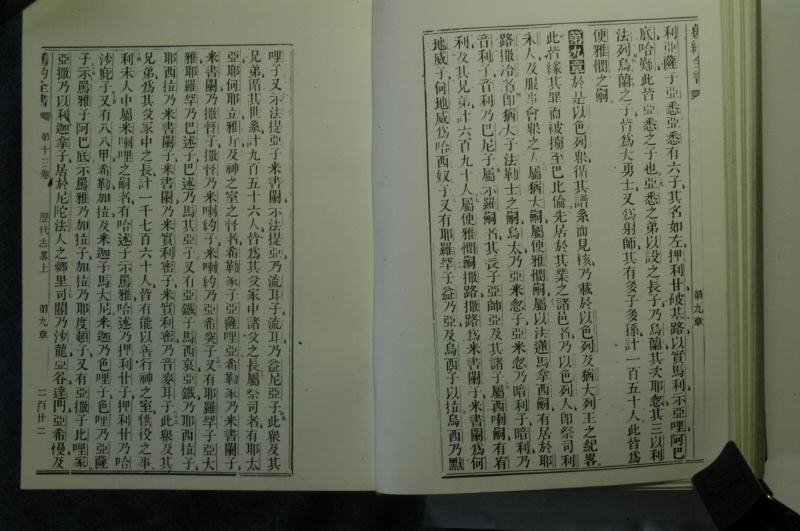 舊約全書
第九章
利亞薩子亞悉亞悉有六子其名如左押利甘破基路以實馬利示亞哩阿巴
底哈難此皆亞悉之子也亞悉之弟以設之長子乃烏蘭其次耶忽其三以利
法列烏蘭之子皆爲大勇士又爲射師其有多子多孫計一百五十人此皆爲
便雅憫之嗣
第九章 於是以色列衆循其譜系而見核乃載於以色列及猶大列王之紀畧
此皆緣其罪而被擄至巴比倫先居於其業之諸邑者乃以色列人卽祭司利
未人及服事會衆之人屬猶大嗣屬便雅憫嗣屬以法蓮馬拿西嗣有居於耶
路撒冷者卽猶大子法勒士之嗣烏太乃亞米忽子亞米忽乃暗利子暗利乃
音利子音利乃巴尼子屬示羅嗣者其長子亞帥亞及其諸子屬西喇嗣有有
利及其兄弟計六百九十人屬便雅憫嗣撒路撒路爲米書闌子米書闌爲何
地威子何地威爲哈西奴子又有耶羅罕子益乃亞及烏西子以拉烏西乃默
哩子又示法提亞子米書闌示法提亞乃流耳子流耳乃益尼亞子此衆及其
兄弟循其世系計九百五十六人皆爲其父家中諸父之長屬祭司者有耶太
亞耶何耶立雅斤及神之室之督者希勒家子亞薩哩亞希勒家乃米書闌子
米書闌乃撒督子撒督乃米喇約子米喇約乃亞希突子又有耶羅罕子亞大
雅耶羅罕乃巴述子巴述乃馬其亞子又有亞鐵子馬西哀亞鐵乃耶西拉子
耶西拉乃米書闌子米書闌乃米實利密子米實利密乃音麥耳子此衆及其
兄弟爲其父家中之長計一千七百六十人皆有能以善行神之室供役之事
利未人中屬米喇哩之嗣者有哈述子示罵雅哈述乃押利甘子押利甘乃哈
沙庇子又有八八甲希勒加拉及米迦子馬大尼米迦乃色哩子色哩乃亞薩
子示罵雅子阿巴底示罵雅乃加拉子加拉乃耶度頓子又有亞撒子比哩家
亞撒乃以利迦拿子居於尼陀法人之鄉里司閽乃沙龍亞谷達門亞希慢及
舊約全書
第十三卷
歷代志畧上
第九章
二百廿二